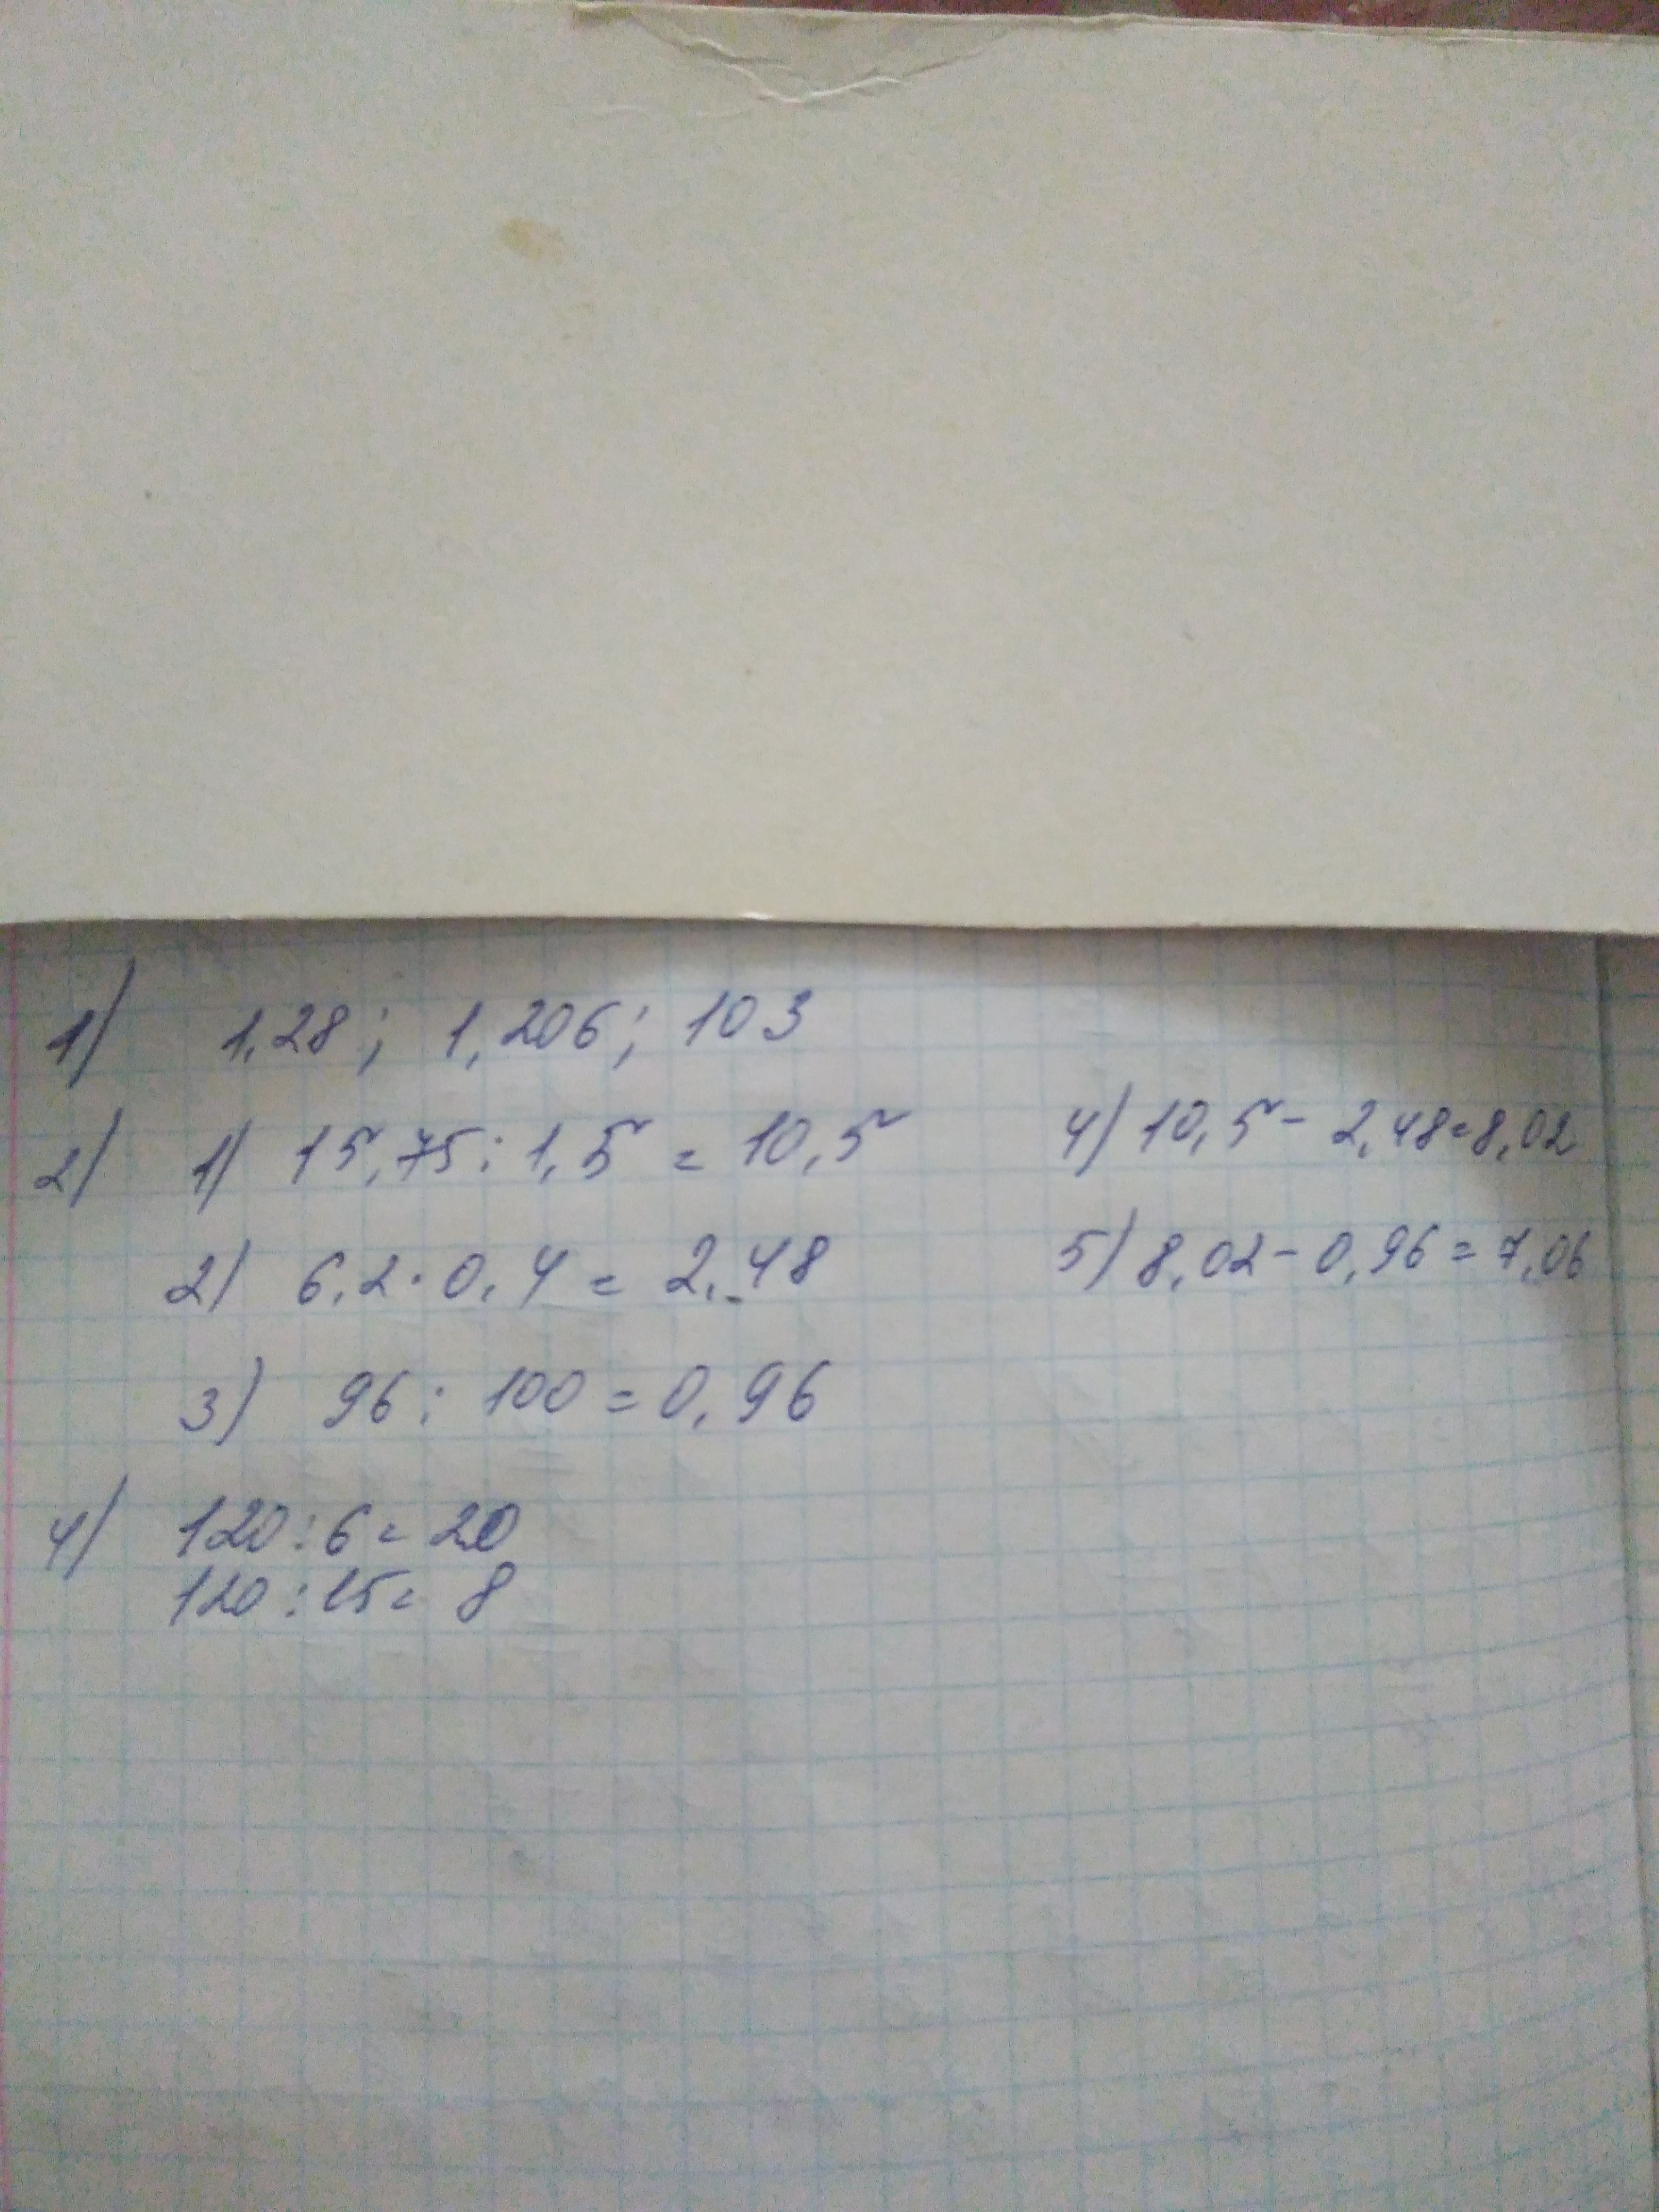 1) 1,28; 1,206; 103
2) 1) 15,75:1,5 = 10,5
2) 6,2·0,4 = 2,48
3) 96 : 100 = 0,96
4) 10,5 - 2,48=8,02
5) 8,02 - 0,96 = 7,06
4) 120:6= 20
120:15= 8